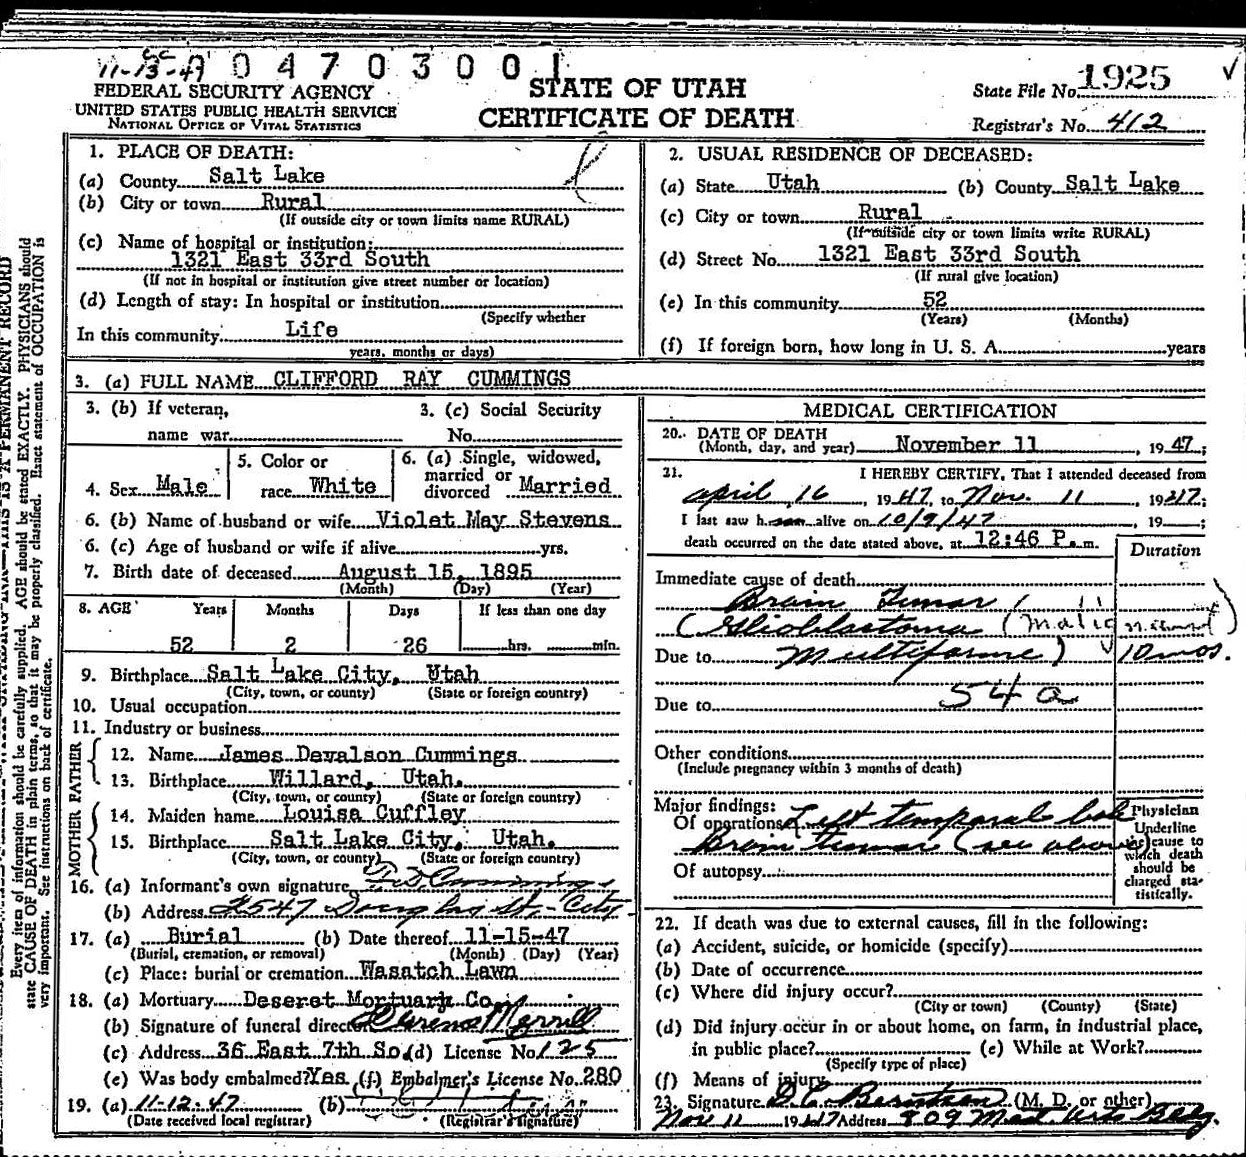 11-13-47 0 4 7 0 3 0 0 1
FEDERAL SECURITY AGENCY
UNITED STATES PUBLIC HEALTH SERVICE
NATIONAL OFFICE OF VITAL STATISTICS
STATE OF UTAH
CERTIFICATE OF DEATH
State File No. 1925
Registrar's No. 412
Every item of information should be carefully supplied. AGE should be stated EXACTLY. PHYSICIANS should
state CAUSE OF DEATH in plain terms, so that it may be properly classified. Exact statement of OCCUPATION is
very important. See instructions on back of certificate.
1. PLACE OF DEATH:
(a) County Salt Lake
(b) City or town Rural
(If outside city or town limits name RURAL)
(c) Name of hospital or institution:
1321 East 33rd South
(If not in hospital or institution give street number or location)
(d) Length of stay: In hospital or institution
(Specify whether
In this community Life
years, months or days)
2. USUAL RESIDENCE OF DECEASED:
(a) State Utah (b) County Salt Lake
(c) City or town Rural
(If outside city or town limits write RURAL)
(d) Street No. 1321 East 33rd South
(If rural give location)
(e) In this community 52
(Years) (Months)
(f) If foreign born, how long in U. S. A. years
3. (a) FULL NAME CLIFFORD RAY CUMMINGS
3. (b) If veteran,
name war
3. (c) Social Security
No.
4. Sex Male
5. Color or
race White
6. (a) Single, widowed,
married or
divorced Married
6. (b) Name of husband or wife Violet May Stevens
6. (c) Age of husband or wife if alive yrs.
7. Birth date of deceased August 15, 1895
(Month) (Day) (Year)
8. AGE Years Months Days If less than one day
52 2 26 hrs. min.
9. Birthplace Salt Lake City, Utah
(City, town, or county) (State or foreign country)
10. Usual occupation
11. Industry or business
FATHER
12. Name James Devalson Cummings
13. Birthplace Willard, Utah.
(City, town, or county) (State or foreign country)
MOTHER
14. Maiden name Louisa Cuffley
15. Birthplace Salt Lake City, Utah.
(City, town, or county) (State or foreign country)
16. (a) Informant's own signature Cummings
(b) Address 2547 Douglas St.- City
17. (a) Burial (b) Date thereof 11-15-47
(Burial, cremation, or removal) (Month) (Day) (Year)
(c) Place: burial or cremation Wasatch Lawn
18. (a) Mortuary Deseret Mortuary Co.
(b) Signature of funeral director Merrill
(c) Address 36 East 7th So. (d) License No. 125
(e) Was body embalmed? Yes (f) Embalmer's License No. 280
19. (a) 11-12-47 (b)
(Date received local registrar) (Registrar's signature)
MEDICAL CERTIFICATION
20. DATE OF DEATH
(Month, day, and year) November 11, 1947;
21. I HEREBY CERTIFY, That I attended deceased from
April 16, 1947, to Nov. 11 1947;
I last saw h alive on 10/9/47, 19 ;
death occurred on the date stated above, at 12:46 P. m.
Duration
Immediate cause of death
Brain Tumor
(Glioblastoma (malignant)
Due to Multiforme) 10 mos.
Due to 54 a
Other conditions
(Include pregnancy within 3 months of death)
Major findings:
Of operations Left temporal lobe
Brain tumor (see above)
Of autopsy
Physician
Underline
the cause to
which death
should be
charged sta-
tistically.
22. If death was due to external causes, fill in the following:
(a) Accident, suicide, or homicide (specify)
(b) Date of occurrence
(c) Where did injury occur?
(City or town) (County) (State)
(d) Did injury occur in or about home, on farm, in industrial place,
in public place? (e) While at Work?
(Specify type of place)
(f) Means of injury
23. Signature (M. D. or other)
Nov 11 1947 Address 809 Med. Arts Bldg.